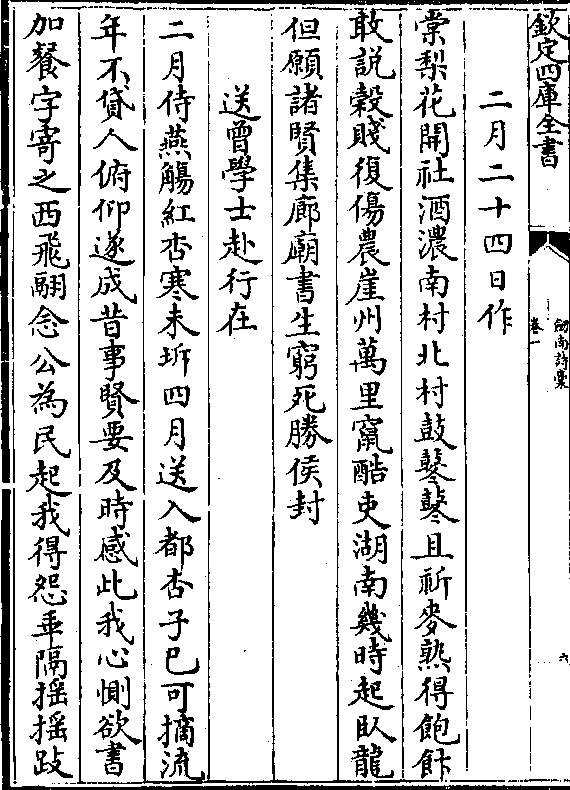 欽定四庫全書
劒南詩稾
卷一
六
二月二十四日作
棠梨花開社酒濃南村北村鼓鼕鼕且祈麥熟得飽飰
敢說榖賤復傷農崖州萬里竄酷吏湖南幾時起臥龍
但願諸賢集廊廟書生窮死勝侯封
送曾學士赴行在
二月侍燕觴紅杏寒未拆四月送入都杏子已可摘流
年不貸人俯仰遂成昔事賢要及時感此我心惻欲書
加餐字寄之西飛翮念公為民起我得怨乖隔搖搖跂